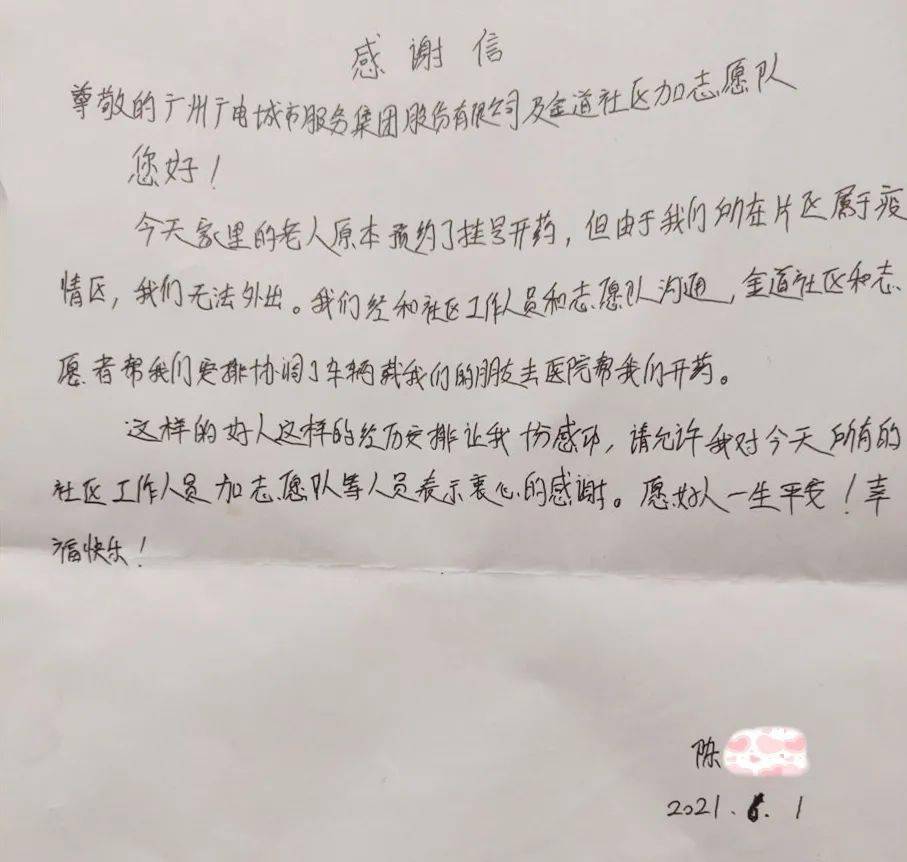 感谢信
尊敬的广州广电城市服务集团股份有限公司及金道社区加志愿队
您好！
今天家里的老人原本预约了挂号开药，但由于我们所在片区属于疫
情区，我们无法外出。我们经和社区工作人员和志愿队沟通，金道社区和志
愿者帮我们安排协调了车辆载我们的朋友去医院帮我们开药。
这样的好人这样的经历安排让我份感动，请允许我对今天所有的
社区工作人员加志愿队等人员表示衷心的感谢。愿好人一生平安！幸
福快乐！
陈
2021.6.1